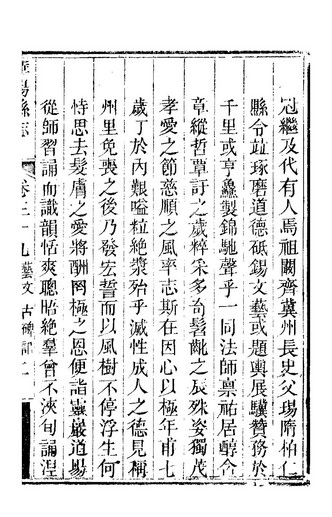 冠繼及代有人焉祖闞齊冀州長史父瑒隋柏仁
縣令竝琢磨道德砥錫文藝或題輿展驥贊務於
千里或亨鱻製錦馳聲乎一同法師稟祐居醇含
章縱哲蕈訏之歲粹采多奇髫齔之辰殊姿獨茂
孝愛之節慈順之風率志斯在因心以極年甫七
歲丁於內艱嗌粒絶漿殆乎滅性成人之德見稱
州里免喪之後乃發宏誓而以風樹不停浮生何
恃思去髮膚之愛將酬罔極之恩便詣靈巖道場
從師習誦而識韻恬爽聰昭絶羣曾不浹旬誦涅
縣志 卷三十九藝文 古碑記 二